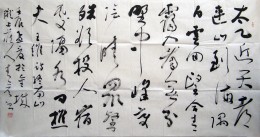 太乙近天都
連山到海隅
白雲回望合青
靄入看無分
野中峰變
陰晴衆壑
殊欲投人宿
處隔水問樵
夫 王維詩終南山